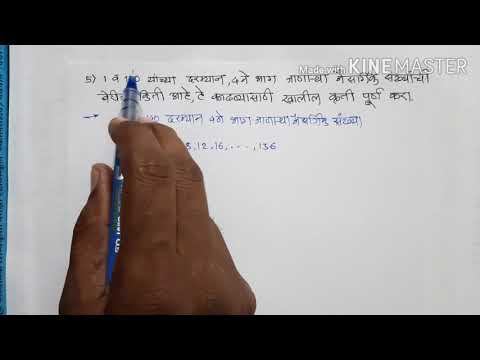 Made with KINEMASTER
5) 1 व 140 यांच्या दरम्यान, 4 ने भाग जाणाऱ्या नैसर्गिक संख्यांची
बेरीज किती आहे, ते काढण्यासाठी खालील कृती पूर्ण करा.
→ 140 दरम्यान 4 ने भाग जाणाऱ्या नैसर्गिक संख्या
8, 12, 16, ..., 136